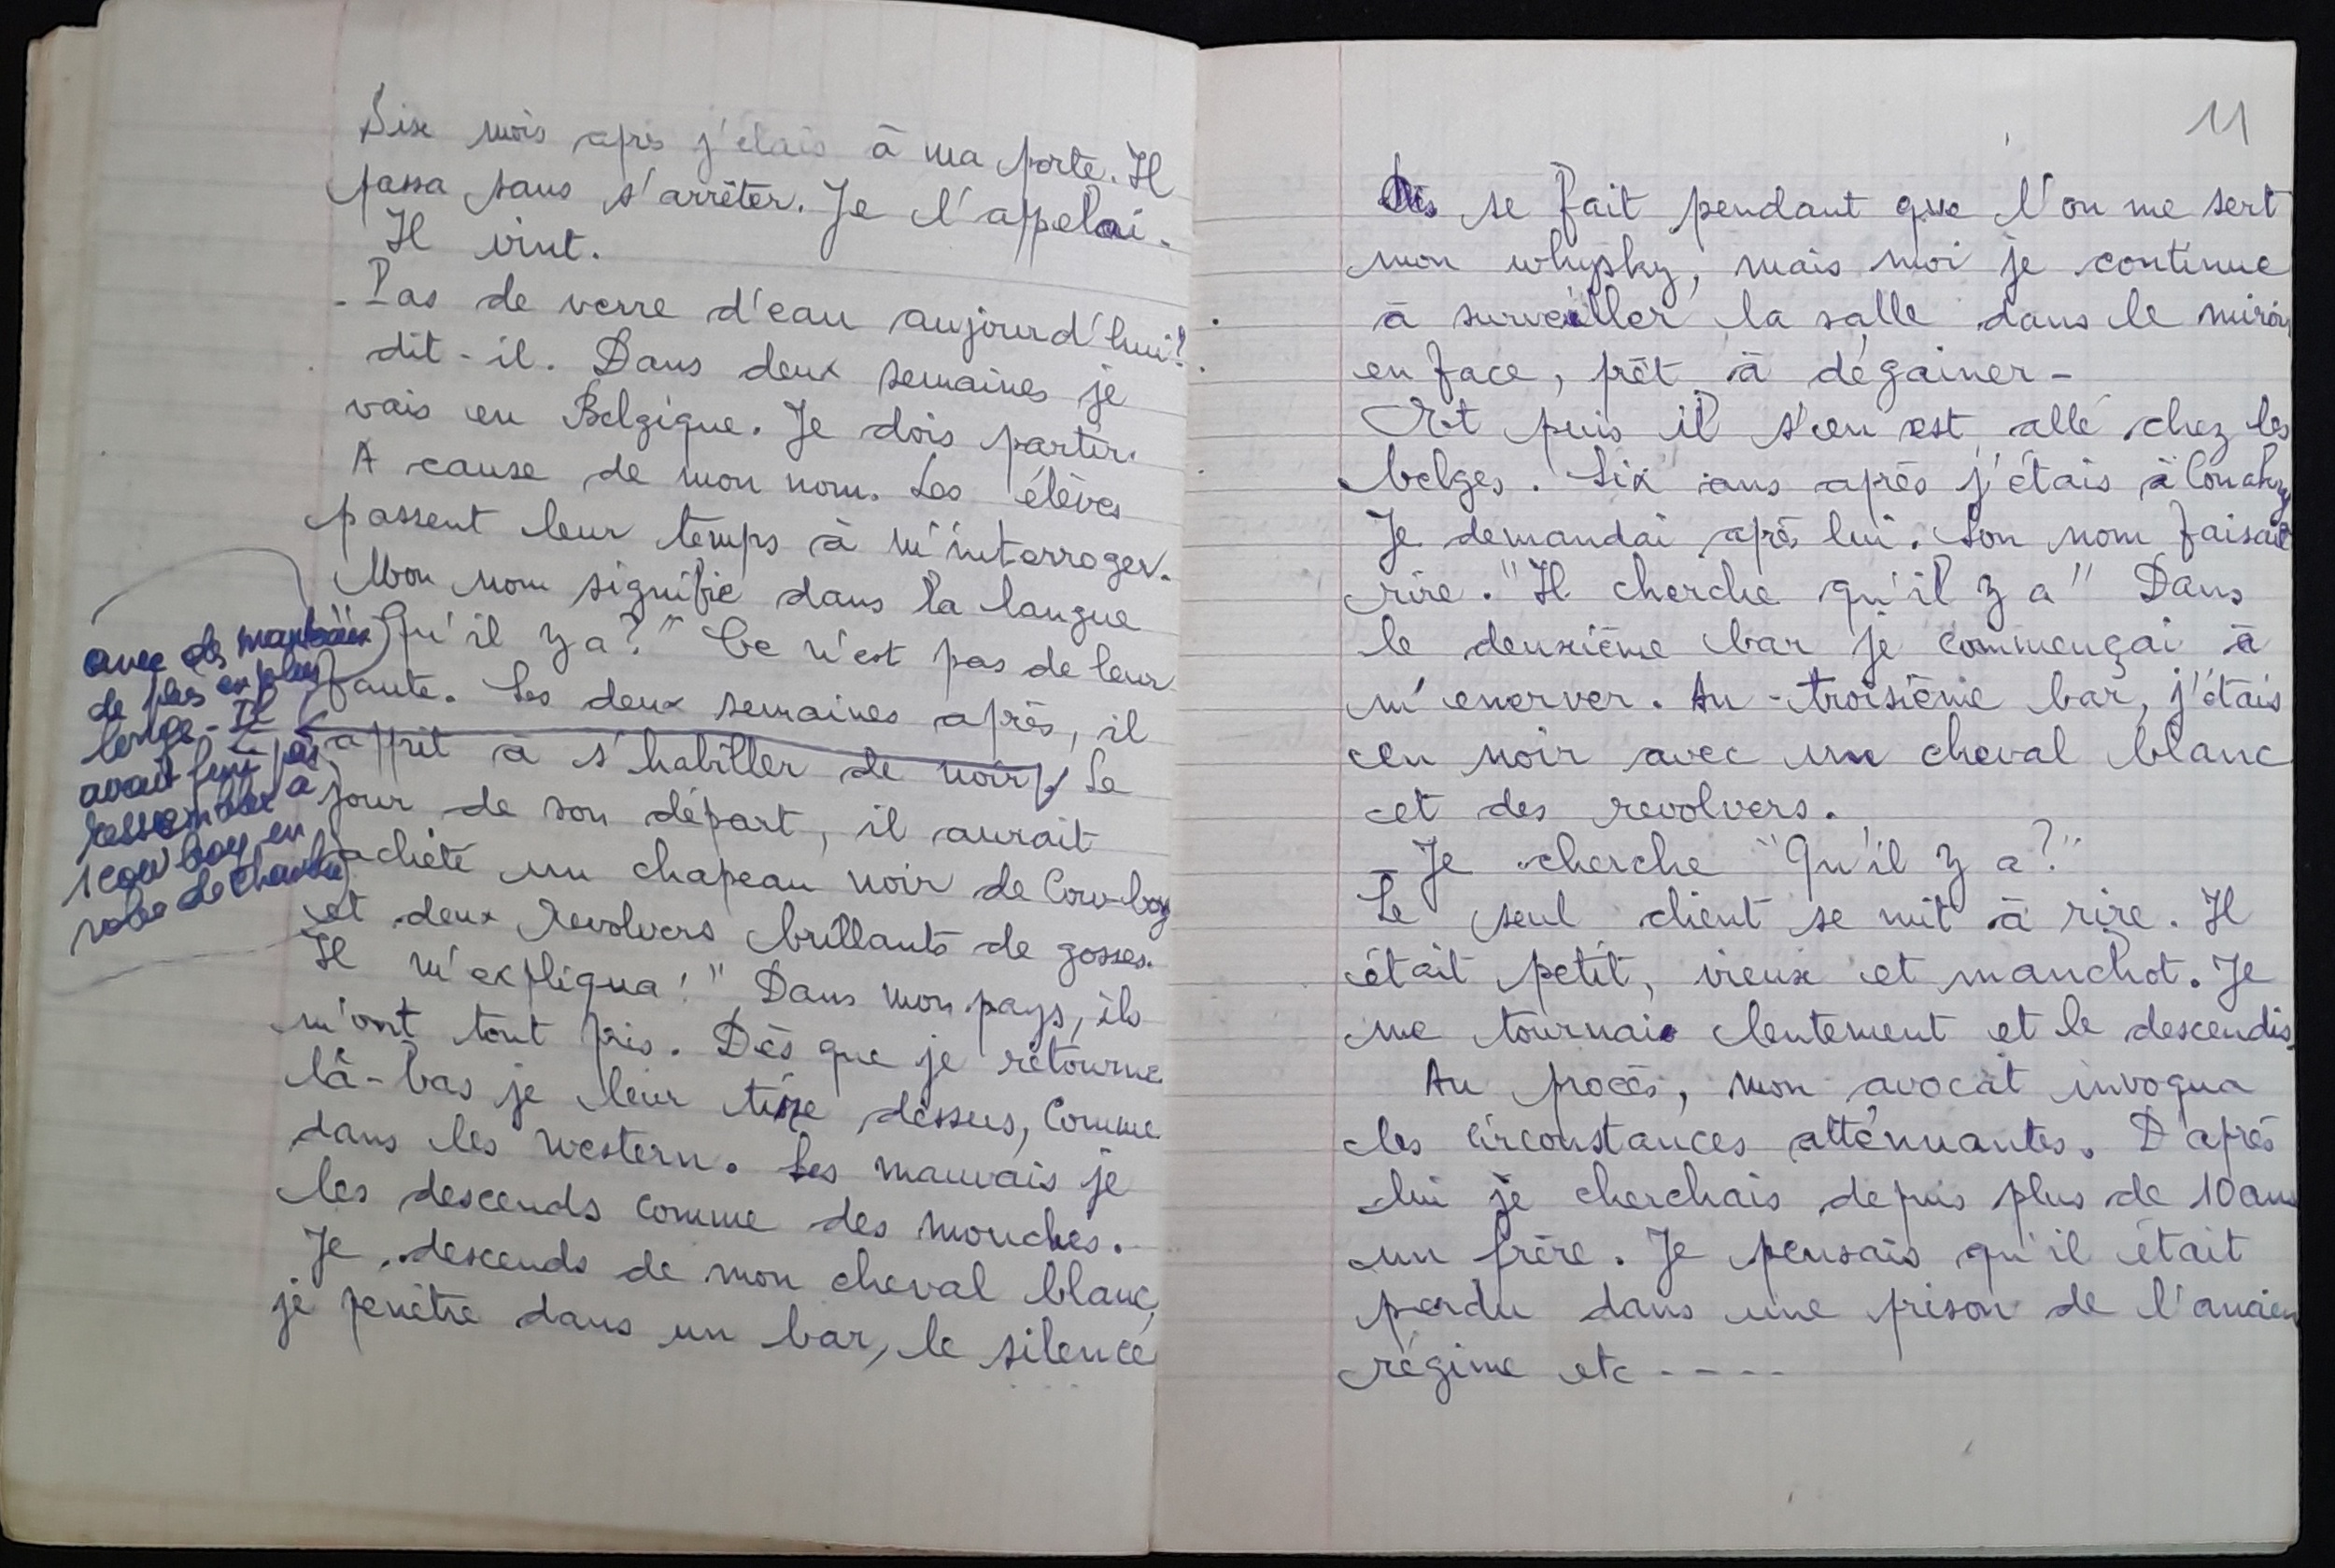 Six mois après j'étais à ma porte. Il
passa sans s'arrêter. Je l'appelai.
Il vint.
- Pas de verre d'eau aujourd'hui?
dit-il. Dans deux semaines je
vais en Belgique. Je dois partir.
A cause de mon nom. Les élèves
passent leur temps à m'interroger.
Mon nom signifie dans la langue
Qu'il y a?" Ce n'est pas de leur
faute. Les deux semaines après, il
apprit à s'habiller de noir. Le
jour de son départ, il aurait
acheté un chapeau noir de Cow-boy
et deux revolvers brillants de gosses.
Il m'expliqua: "Dans mon pays, ils
m'ont tout pris. Dès que je retourne
là-bas je leur tire dessus, comme
dans les western. Les mauvais je
les descends comme des mouches.
Je descends de mon cheval blanc,
je penètre dans un bar, le silence
avec des manteaux
de plus en plus
longs - Il
avait fini par
ressembler à
1 cow boy en
robe de chambre
11
se fait pendant que l'on me sert
mon whysky, mais moi je continue
à surveiller la salle dans le miroir
en face, prêt à dégainer -
Et puis il s'en est allé chez les
belges. Six ans après j'étais à Conakry
Je demandai après lui. Son nom faisait
rire. "Il cherche qu'il y a" Dans
le deuxième bar je commençai à
m'enerver. Au troisième bar, j'étais
en noir avec un cheval blanc
et des revolvers.
- Je cherche "Qu'il y a?"
Le seul client se mit à rire. Il
était petit, vieux et manchot. Je
me tournai lentement et le descendis.
Au procès, mon avocat invoqua
les circonstances atténuantes. D'après
lui je cherchais depuis plus de 10 ans
un frère. Je pensais qu'il était
perdu dans une prison de l'ancien
régime etc ----